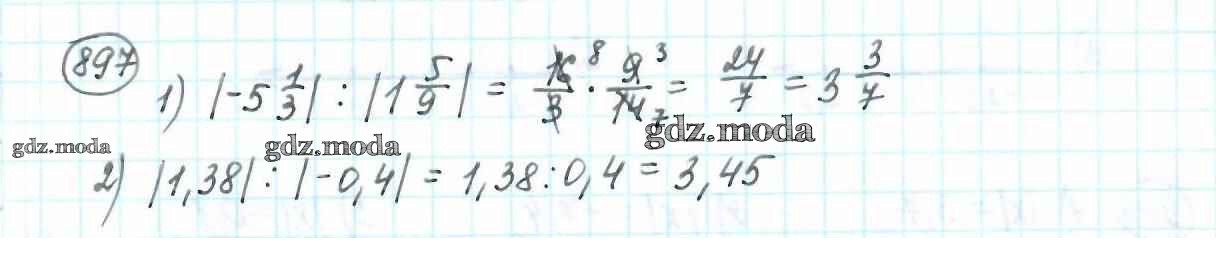 897
1) |-5 1/3| : |1 5/9| = 16/3 8 · 9/14 3 7 = 24/7 = 3 3/7
gdz.moda gdz.moda gdz.moda
2) |1,38| : |-0,4| = 1,38 : 0,4 = 3,45